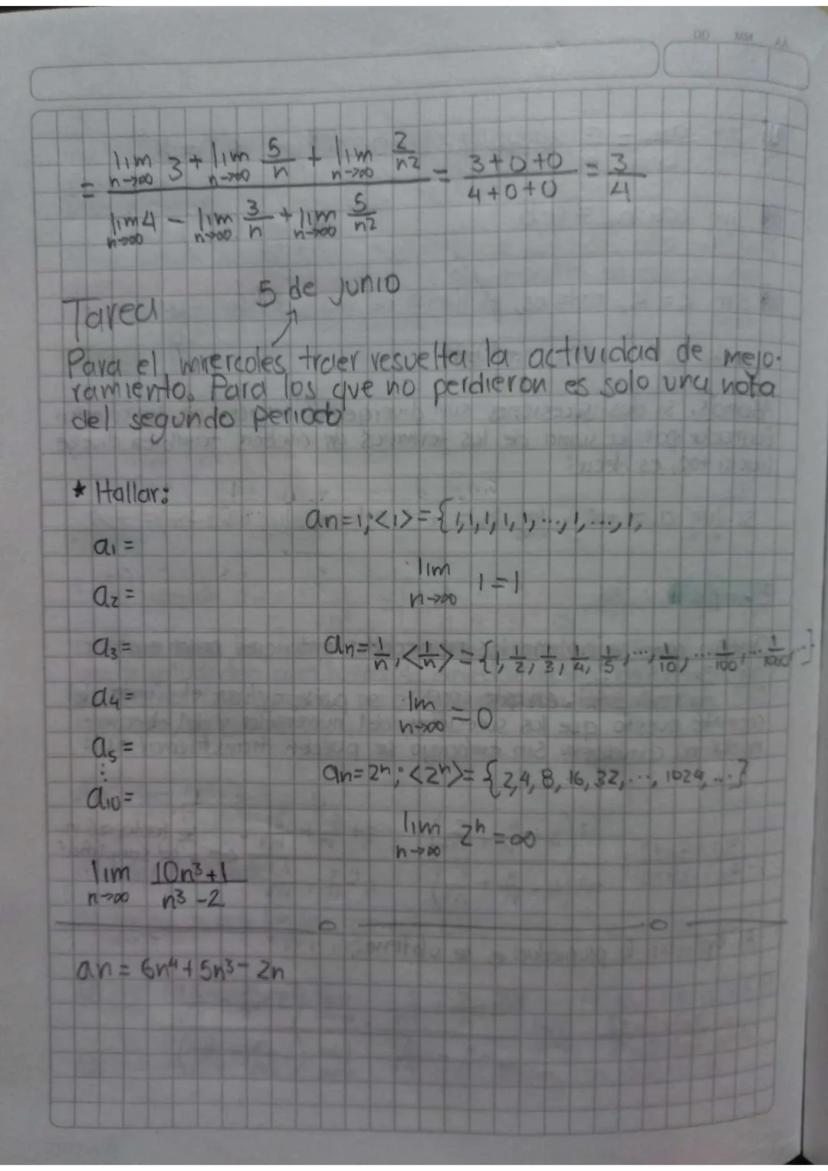 DD MM AA
= (lim n→∞ 3 + lim n→∞ 5/n + lim n→∞ 2/n2) / (lim n→∞ 4 - lim n→∞ 3/n + lim n→∞ 5/n2) = (3+0+0)/(4+0+0) = 3/4
5 de junio
Tarea
Para el miercoles traer resuelta la actividad de mejo-
ramiento. Para los que no perdieron es solo una nota
del segundo periodo
* Hallar:
a1 =
a2 =
a3 =
a4 =
a5 =
⋮
a10 =
lim n→∞ (10n³+1)/(n³-2)
an=1; <1> = {1,1,1,1,1,...,1,...,1,
lim n→∞ 1=1
an=1/n, <1/n> = {1, 1/2, 1/3, 1/4, 1/5, ..., 1/10, ... 1/100, ... 1/1000, ..}
lim n→∞ = 0
an=2ⁿ; <2ⁿ> = {2,4,8,16,32,...,1024,...}
lim n→∞ 2ⁿ=∞
an = 6n⁴+5n³-2n